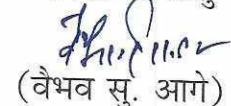 (वैभव सु. आगे)